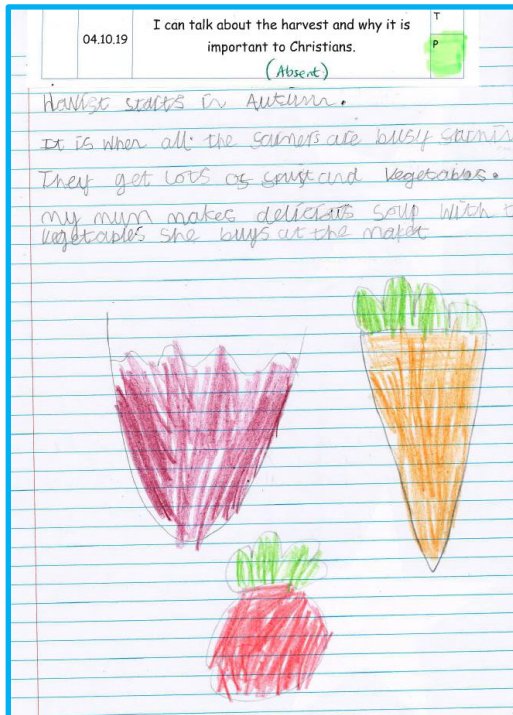 T
04.10.19
I can talk about the harvest and why it is
important to Christians.
P
(Absent)
starts in Autumn.
It is when all the farmers are busy
They get lots of fruit and vegetables.
my mum makes delicious soup with
vegetables she buys at the maket